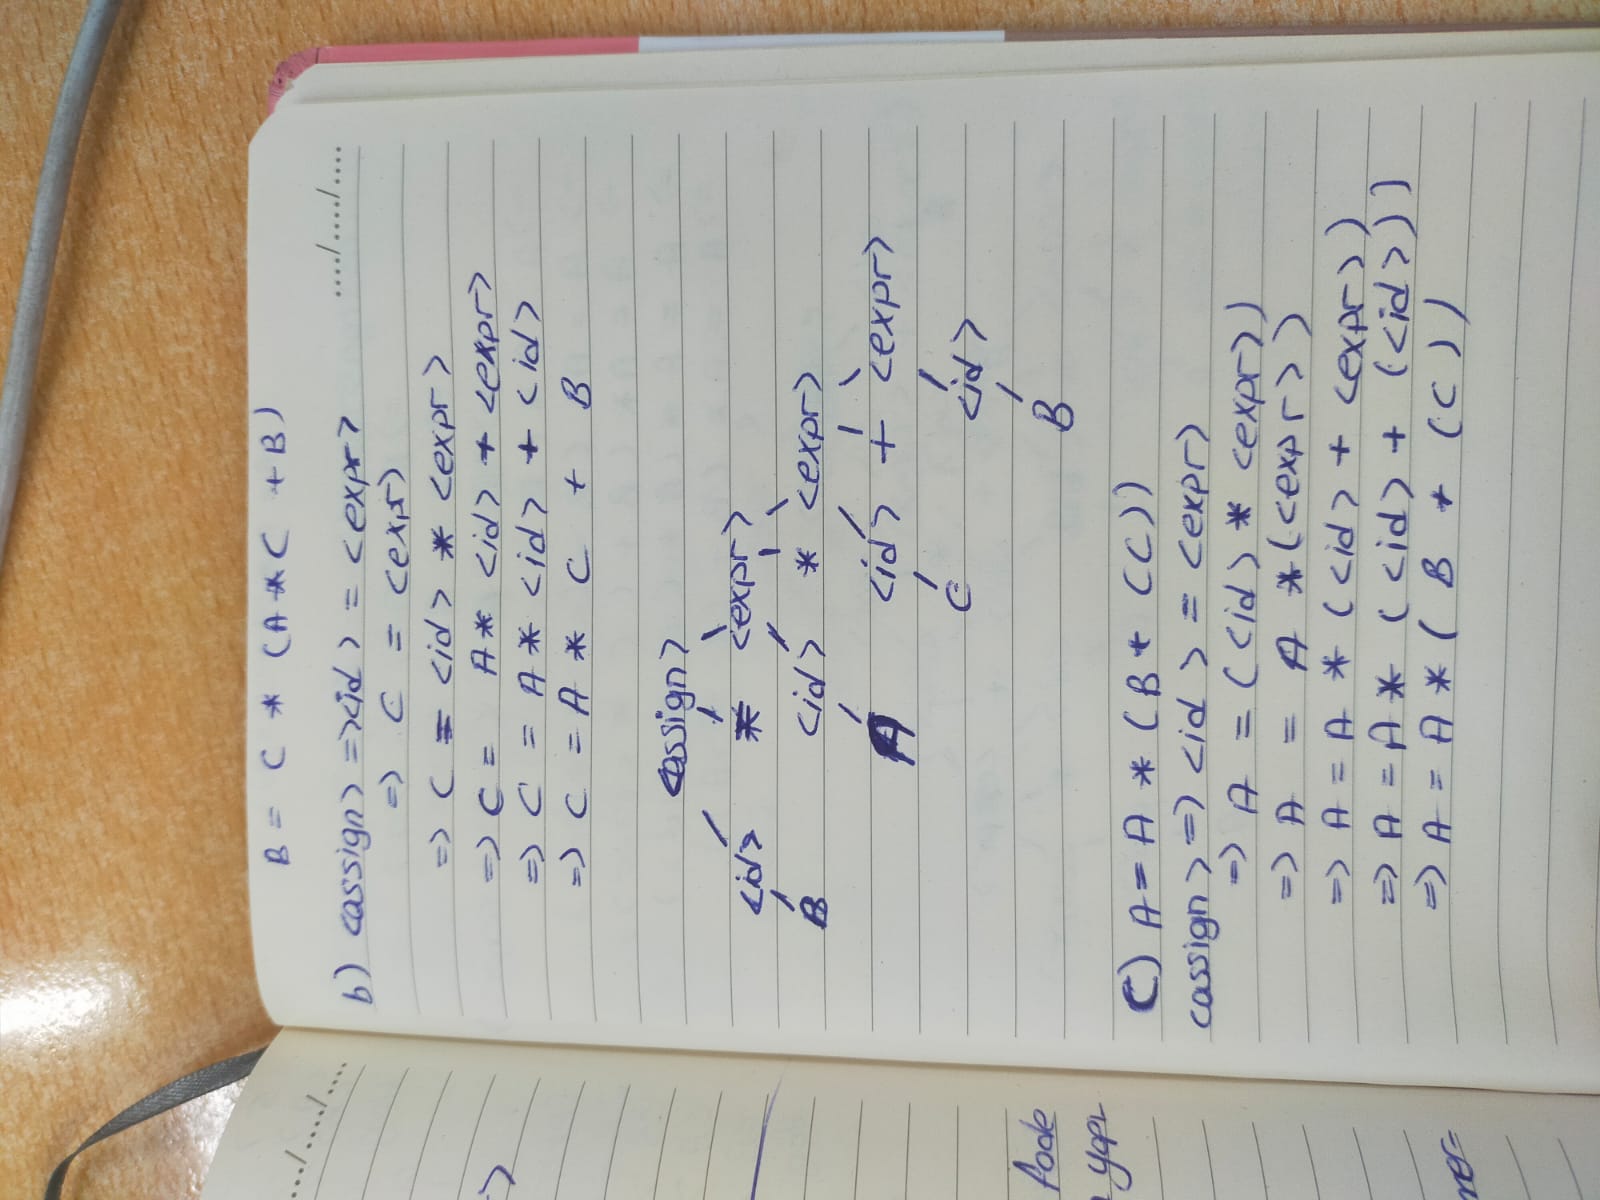 ..../...../....
B = C * (A * C + B)
b) <assign> => <id> = <expr>
=> C = <expr>
=> C = <id> * <expr>
=> C = A * <id> + <expr>
=> C = A * <id> + <id>
=> C = A * C + B
<assign>
<id> = <expr>
B <id> * <expr>
A <id> + <expr>
C <id>
B
C) A = A * (B + (C))
<assign> => <id> = <expr>
=> A = (<id> * <expr>)
=> A = A * (<expr>)
=> A = A * (<id> + <expr>)
=> A = A * (<id> + (<id>))
=> A = A * ( B + (C))
..../..../....